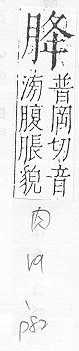 胮
普岡切音
滂腹脹貌
肉
19
p82